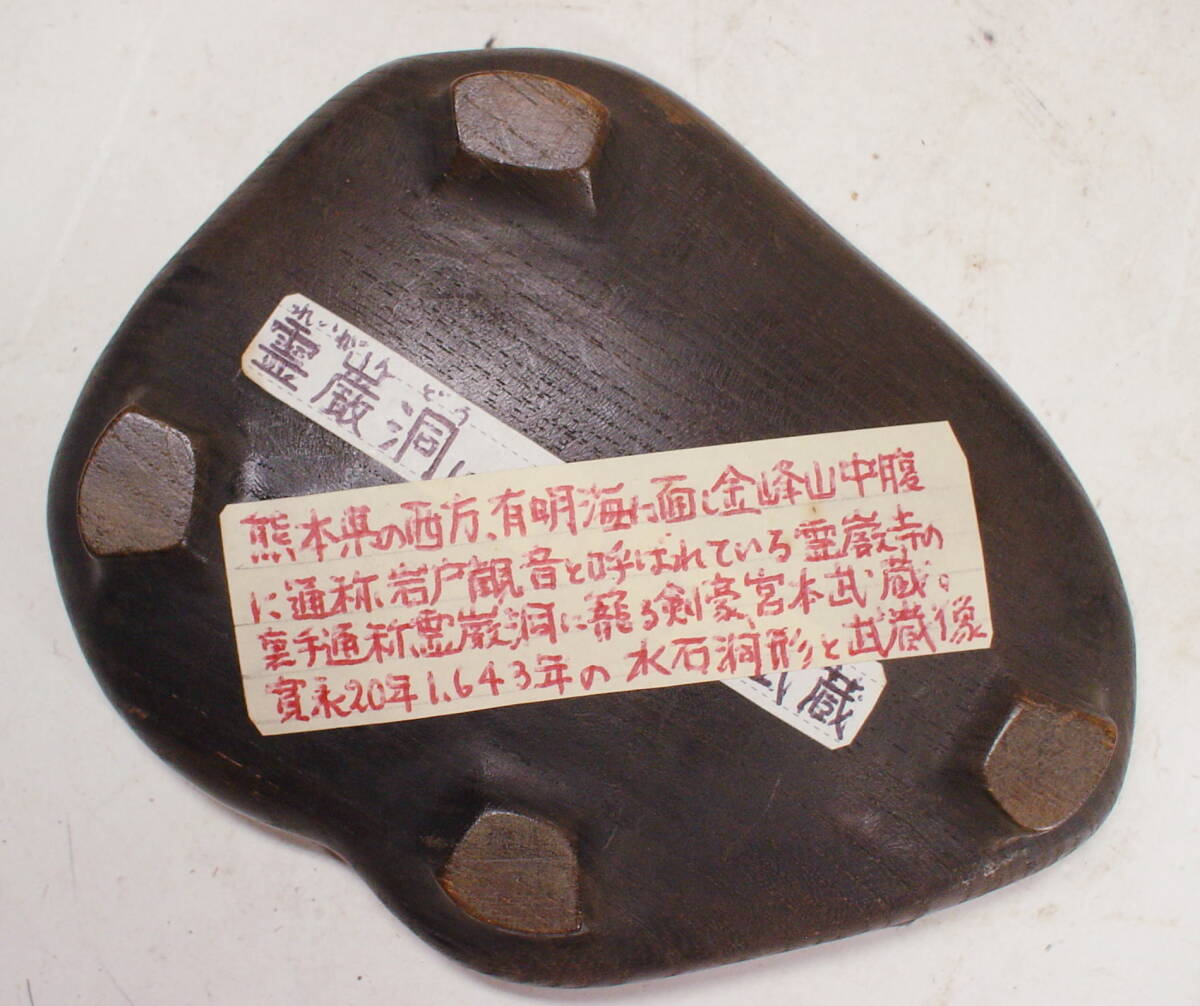 れいがんどう
霊巌洞に
武蔵
熊本県の西方、有明海に面し金峰山中腹
に通称、岩戸観音と呼ばれている霊巌寺の
裏手通称霊巌洞に籠る剣豪、宮本武蔵。
寛永20年1.643年の 水石洞形と武蔵像